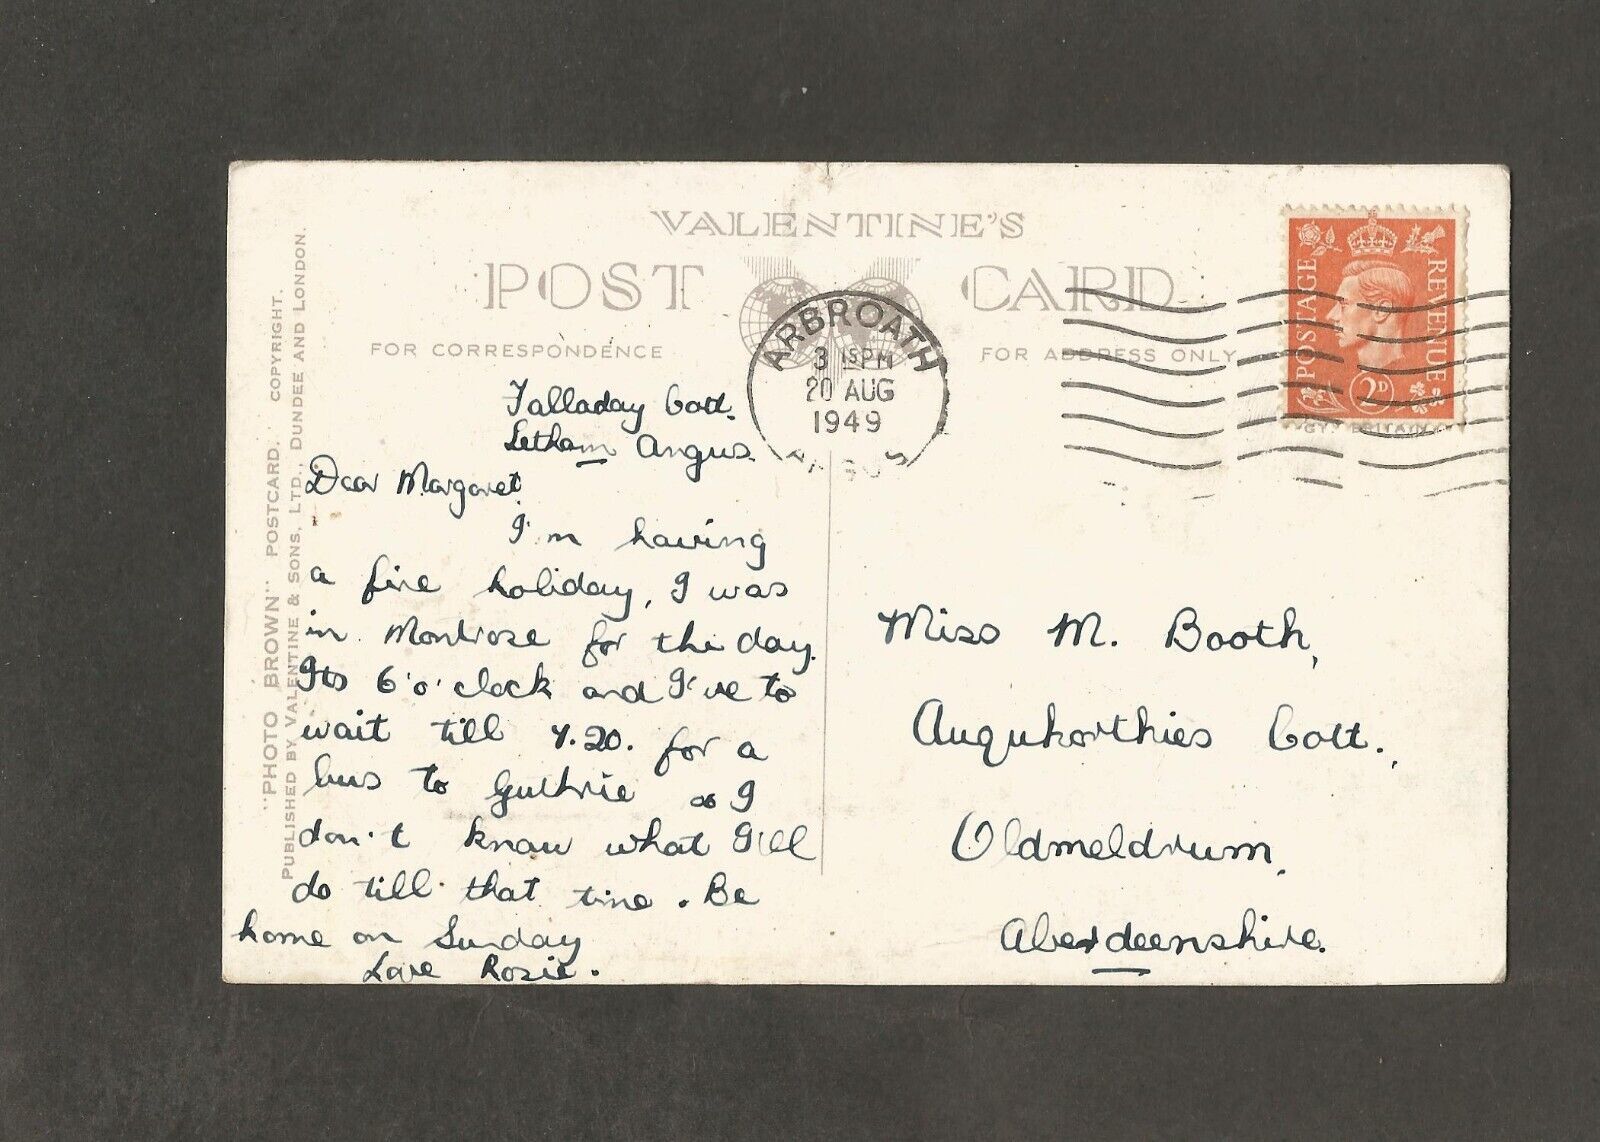 VALENTINE'S
POST CARD
FOR CORRESPONDENCE
FOR ADDRESS ONLY
"PHOTO BROWN" POSTCARD. COPYRIGHT.
PUBLISHED BY VALENTINE & SONS, LTD., DUNDEE AND LONDON.
ARBROATH
3 15PM
20 AUG
1949
ANGUS
POSTAGE
REVENUE
2D
Falladay Cott.
Letham Angus.
Dear Margaret,
I'm having
a fine holiday, I was
in Montrose for the day.
Its 6'o'clock and I've to
wait till 7.20. for a
bus to Guthrie so I
don't know what I'll
do till that time. Be
home on Sunday
Love Rosie.
Miss M. Booth,
Auquhorthies Cott.,
Oldmeldrum,
Aberdeenshire.